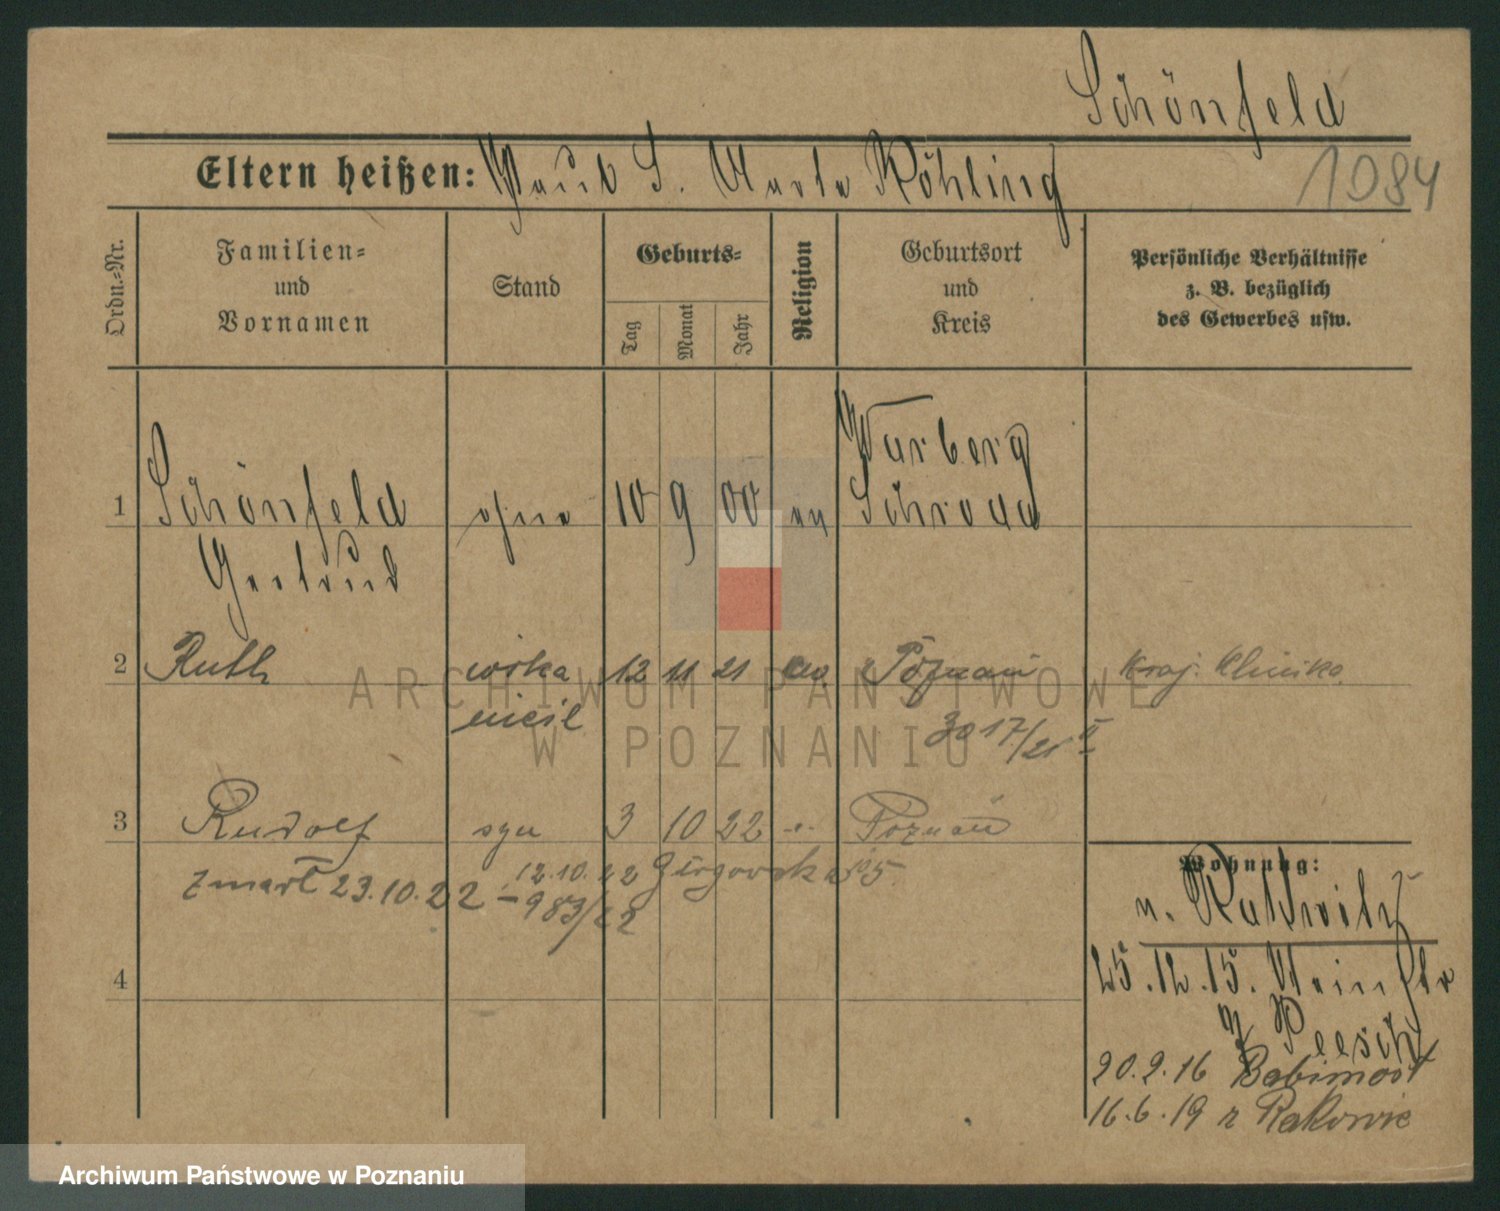 Schönfeld
1084
Eltern heißen: S. Marta Röhling
Ordn.-Nr.
Familien-
und
Vornamen
Stand
Geburts-
Tag
Monat
Jahr
Religion
Geburtsort
und
Kreis
Persönliche Verhältnisse
z. B. bezüglich
des Gewerbes usw.
Warberg
1 Schönfeld ohne 10 9 00 ev
Gertrud
2 Ruth córka 12 11 21 Poznań Kraj. Klinika
nieśl
3017/21 II
3 Rudolf syn 3 10 22 -"- Poznań
zmarł 23.10.22 - 983/22
12.10.22
Wohnung:
4
25.12.15.
z
20.2.16 Babimost
16.6.19 z Rakowie
ARCHIWUM PAŃSTWOWE
W POZNANIU
Archiwum Państwowe w Poznaniu